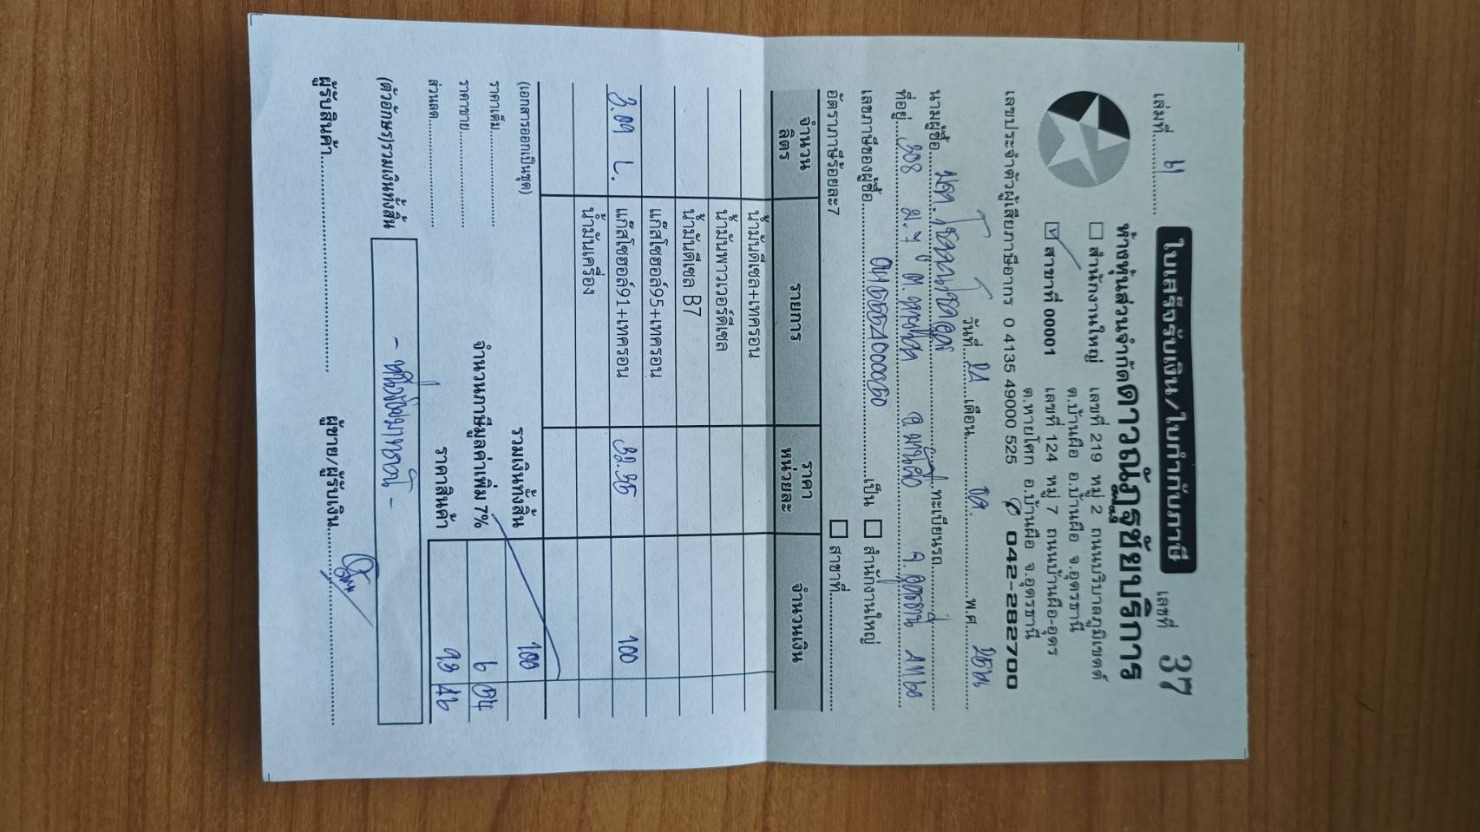 เล่มที่....๖๑....
ใบเสร็จรับเงิน/ใบกำกับภาษี
เลขที่ 37
ห้างหุ้นส่วนจำกัดดาวณัฏฐชัยบริการ
☐ สำนักงานใหญ่ เลขที่ 219 หมู่ 2 ถนนบริบาลภูมิเขตต์
ต.บ้านผือ อ.บ้านผือ จ.อุดรธานี
☑ สาขาที่ 00001 เลขที่ 124 หมู่ 7 ถนนบ้านผือ-อุดร
ต.หายโศก อ.บ้านผือ จ.อุดรธานี
เลขประจำตัวผู้เสียภาษีอากร 0 4135 49000 525 ✆ 042-282700
วันที่....เดือน....พ.ศ....
นามผู้ซื้อ....ทะเบียนรถ....
ที่อยู่....308 ม.7 ต. อ. จ.อุดรธานี 41160
เลขภาษีของผู้ซื้อ....เป็น ☐ สำนักงานใหญ่
อัตราภาษีร้อยละ7 ☐ สาขาที่....
จำนวนลิตร รายการ ราคาหน่วยละ จำนวนเงิน
น้ำมันดีเซล+เทครอน
น้ำมันพาวเวอร์ดีเซล
น้ำมันดีเซล B7
แก๊สโซฮอล์95+เทครอน
3.09 L. แก๊สโซฮอล์91+เทครอน 32.35 100
น้ำมันเครื่อง
(เอกสารออกเป็นชุด) รวมเงินทั้งสิ้น 100
ราคาเต็ม....
ราคาขาย.... จำนวนภาษีมูลค่าเพิ่ม 7% ๖ ๕๔
ส่วนลด.... ราคาสินค้า ๙๓ ๔๖
(ตัวอักษร)รวมเงินทั้งสิ้น - หนึ่งร้อยบาทถ้วน -
ผู้รับสินค้า.... ผู้ขาย/ผู้รับเงิน....